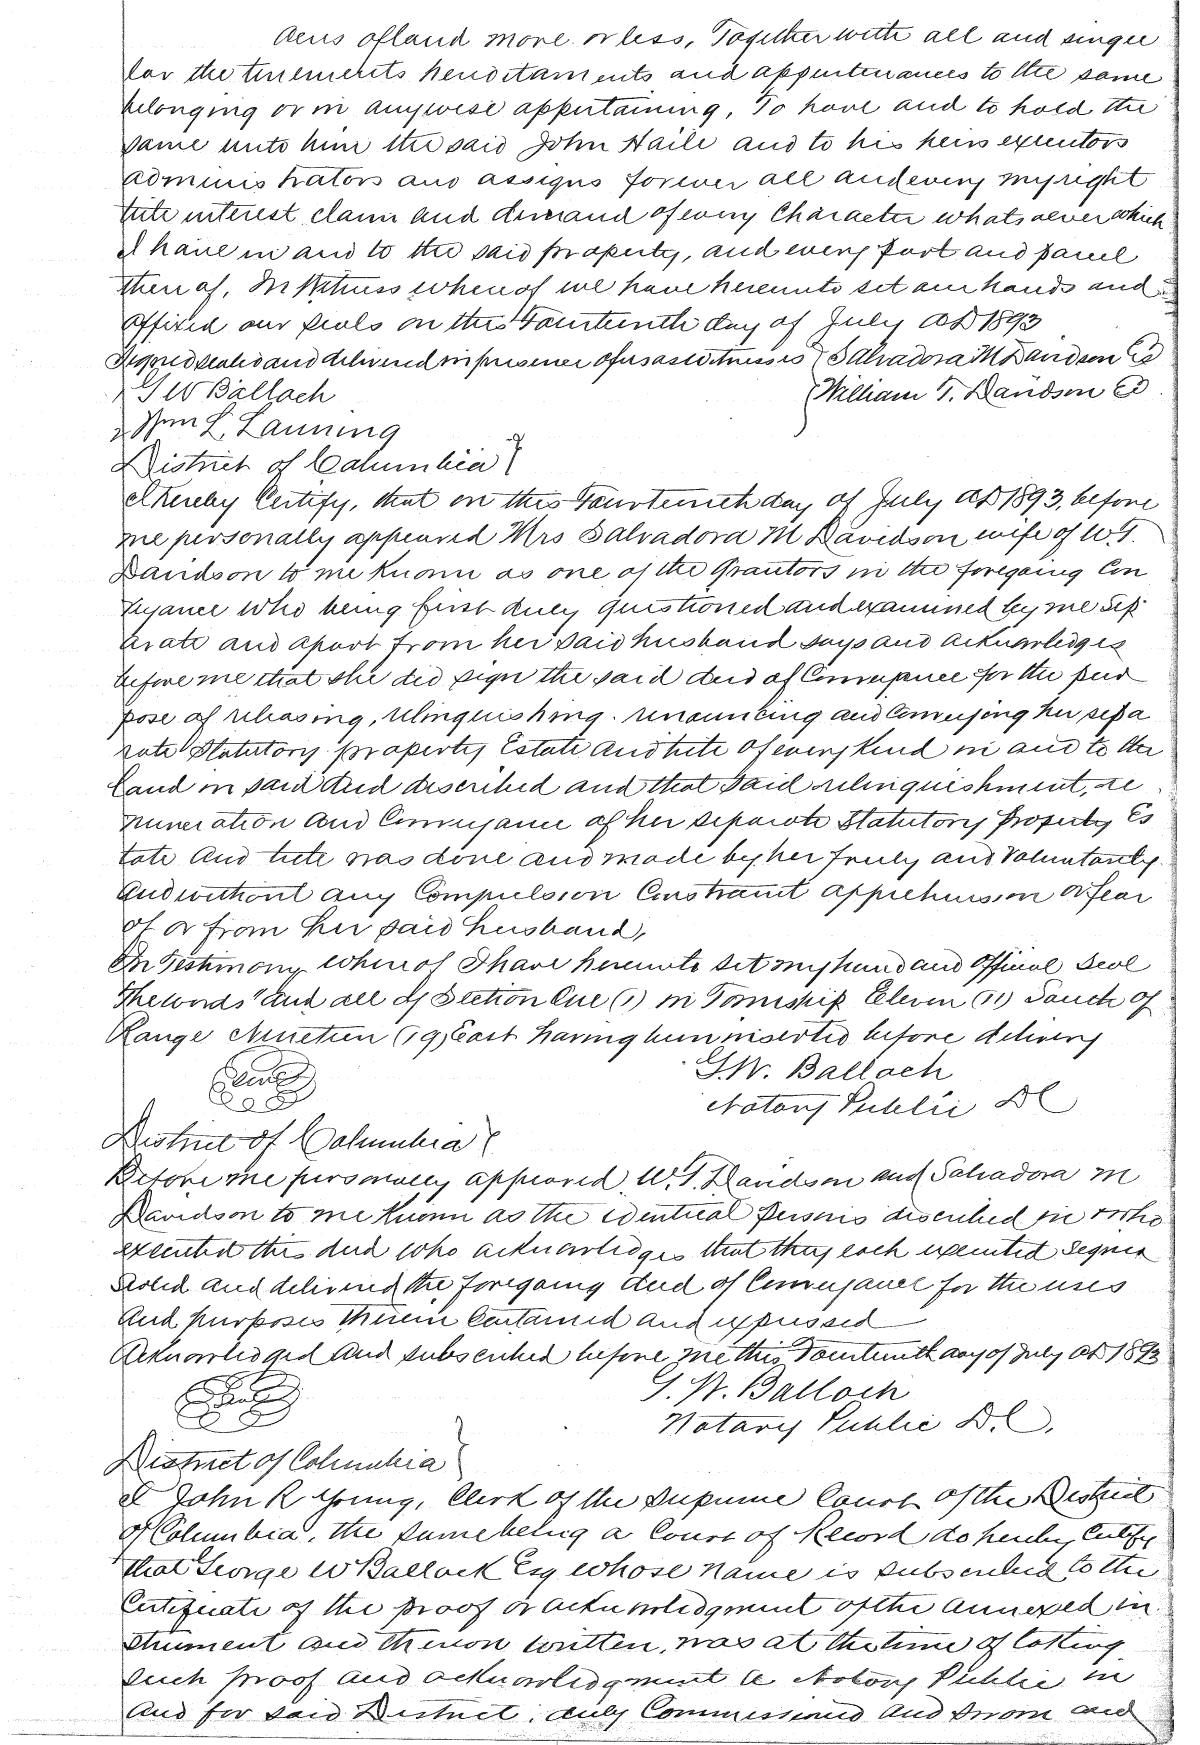 Acres of land more or less, Together with all and singu
lar the tenements hereditaments and appurtenances to the same
belonging or in anywise appertaining, To have and to hold the
same unto him the said John Haile and to his heirs executors
administrators and assigns forever all and every my right
title interest claim and demand of every Character whatsoever which
I have in and to the said property, and every part and parcel
thereof, In Witness whereof we have hereunto set our hands and
affixed our seals on this Fourteenth day of July AD 1893
Signed sealed and delivered in presence of us as witnesses { Salvadora M Davidson
G W Balloch { William T. Davidson
Wm L. Lanning
District of Columbia }
I hereby Certify, that on this Fourteenth day of July AD 1893, before
me personally appeared Mrs Salvadora M Davidson wife of W.T.
Davidson to me Known as one of the Grantors in the foregoing Con
veyance who being first duly questioned and examined by me Sep
arate and apart from her said husband says and acknowledges
before me that she did sign the said deed of Conveyance for the pur
pose of releasing, relinquishing, renouncing and Conveying her sepa
rate Statutory property Estate and title of every Kind in and to the
land in said deed described and that said relinquishment, re
nunciation and Conveyance of her separate Statutory property Es
tate and title was done and made by her freely and Voluntarily
and without any Compulsion Constraint apprehension or fear
of or from her said husband,
In Testimony whereof I have hereunto set my hand and Official Seal
The words "and all of Section One (1) in Township Eleven (11) South of
Range Nineteen (19) East having been inserted before delivery
G. W. Balloch
Notary Public DC
District of Columbia }
Before me personally appeared W. T. Davidson and Salvadora M
Davidson to me Known as the identical persons described in & who
executed this deed who acknowledges that they each executed signed
sealed and delivered the foregoing deed of Conveyance for the uses
and purposes therein Contained and expressed
Acknowledged and subscribed before me this Fourteenth day of July AD 1893
G. W. Balloch
Notary Public D.C.
District of Columbia }
I John R Young, Clerk of the Supreme Court of the District
of Columbia, the same being a Court of Record do hereby Certify
that George W Ballock Esq whose name is subscribed to the
Certificate of the proof or acknowledgment of the annexed in
strument and thereon written, was at the time of taking
such proof and acknowledgment a Notary Public in
and for said District, duly Commissioned and sworn and